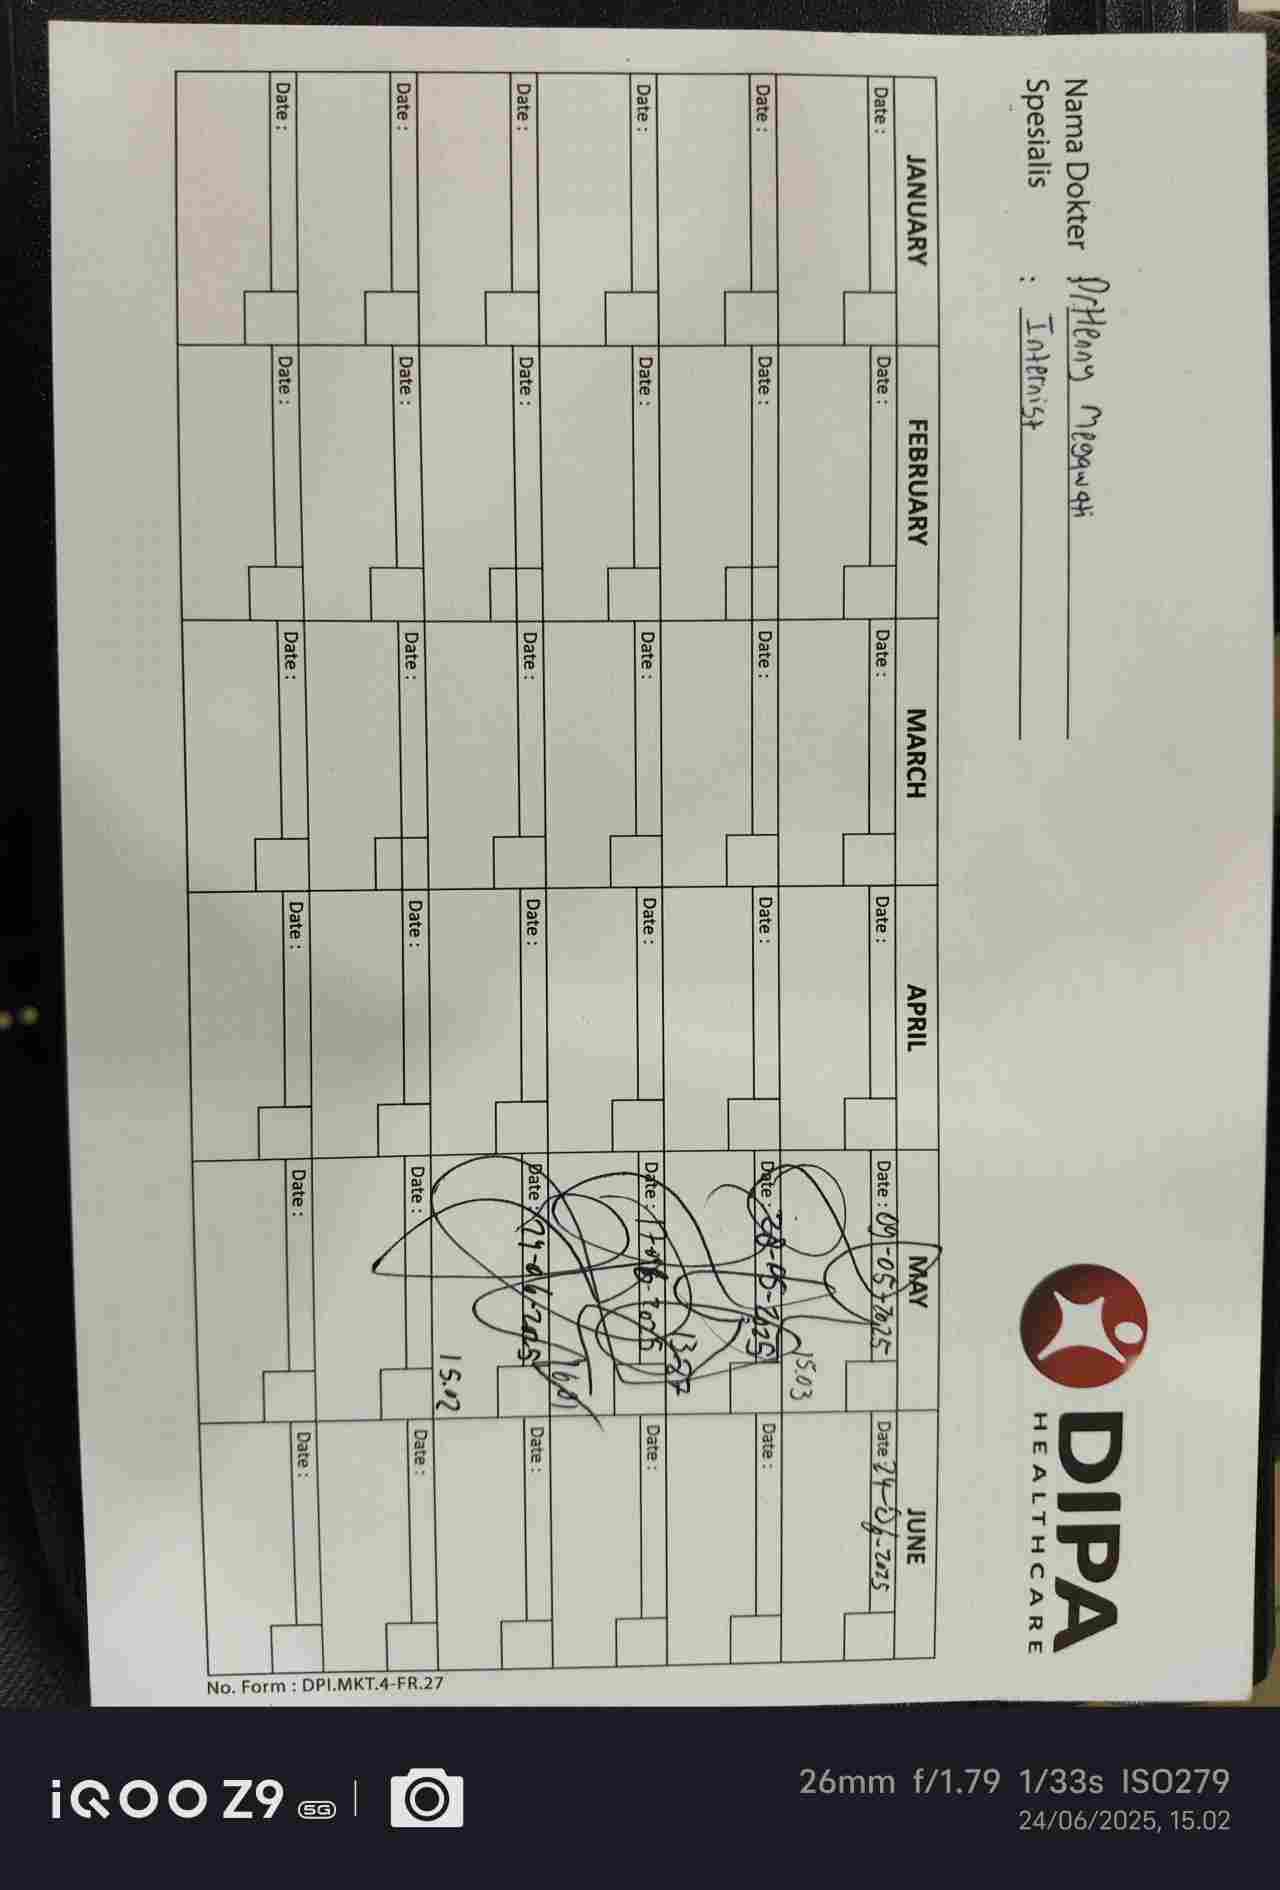 Nama Dokter Dr. Henny Megawati
Spesialis : Internist
DIPA
HEALTHCARE
JANUARY FEBRUARY MARCH APRIL MAY JUNE
Date : Date : Date : Date : Date : 09-05-2025 Date : 24-06-2025
15.03
Date : Date : Date : Date : Date : 28-05-2025 Date :
13-27
Date : Date : Date : Date : Date : 17-06-2025 Date :
Date : Date : Date : Date : Date : 24-06-2025 Date :
15.02
Date : Date : Date : Date : Date : Date :
Date : Date : Date : Date : Date : Date :
No. Form : DPI.MKT.4-FR.27
iQOO Z9 5G
26mm f/1.79 1/33s ISO279
24/06/2025, 15.02